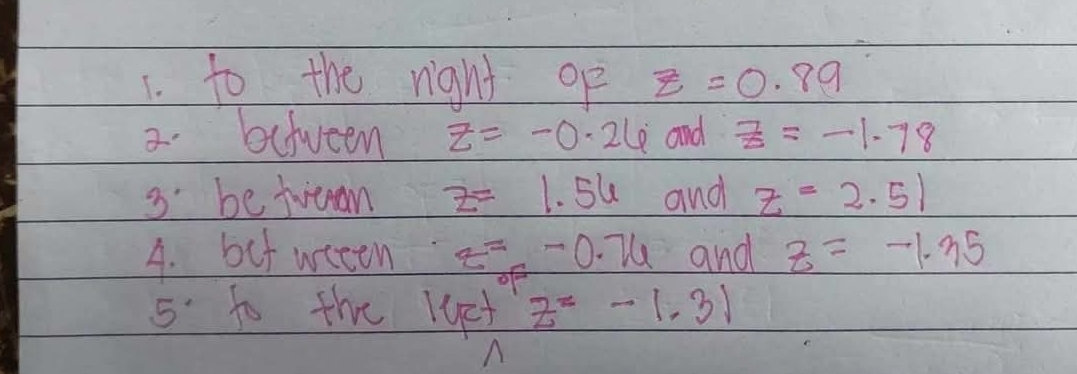 1. to the right of z = 0.89
2. between z = -0.26 and z = -1.78
3. between z = 1.56 and z = 2.51
4. between z = -0.76 and z = -1.35
5. to the left of z = -1.31